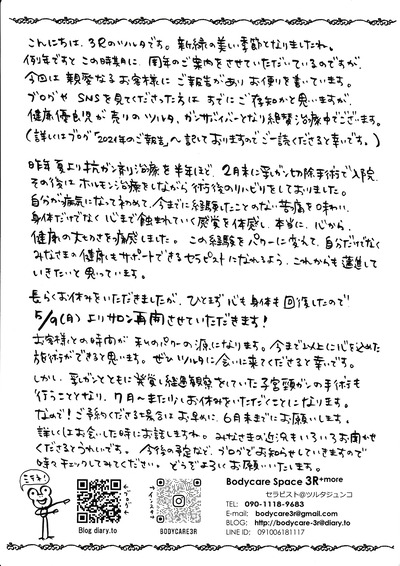 こんにちは、3Rのツルタです。新緑の美しい季節となりましたね。
例年ですと この時期に、周年のご案内をさせていただいているのですが、
今回は 親愛なるお客様に ご報告があり お便りを書いています。
ブログや SNSを見てくださった方は すでにご存知かと思いますが、
健康優良児が売りのツルタ、ガンサバイバーとなり絶賛治療中でございます。
(詳しくはブログ「2021年のご報告」へ記しておりますのでご一読くださると幸いです。)
昨年夏より抗ガン剤治療を半年ほど、2月末に乳ガン切除手術で入院、
その後は ホルモン治療をしながら 術後のリハビリをしておりました。
自分が病気になって初めて、今までに経験したことのない苦痛を味わい、
身体だけでなく 心まで蝕まれていく感覚を体感し、本当に、心から、
健康の大切さを痛感しました。この経験をパワーに変えて、自分だけでなく
みなさまの健康もサポートできるセラピストになれるよう、これからも邁進して
いきたいと思っています。
長らくお休みをいただきましたが、ひとまず心も身体も回復したので
5/9(月)よりサロン再開させていただきます!
お客様との時間が 私のパワーの源になります。今まで以上に心を込めた
施術ができると思います。ぜひツルタに会いに来てくださると幸いです。
しかし、乳ガンとともに発覚し経過観察をしていた子宮頸ガンの手術も
行うこととなり、7月〜また少しお休みをいただくことになります。
なので!ご予約くださる場合はお早めに、6月末までにお願いします。
詳しくはお会いした時にお話しますね。みなさまの近況もいろいろお聞かせ
くださるとうれしいです。今後の予定など、ブログでお知らせしていきますので
時々チェックしてみてください。どうぞよろしくお願いいたします。
ブログ
Blog diary.to
インスタ
BODYCARE3R
Bodycare Space 3R+more
セラピスト@ツルタジュンコ
TEL: 090-1118-9683
E-mail: bodycare3r@gmail.com
BLOG: http://bodycare-3r@diary.to
LINE ID: 091006181117